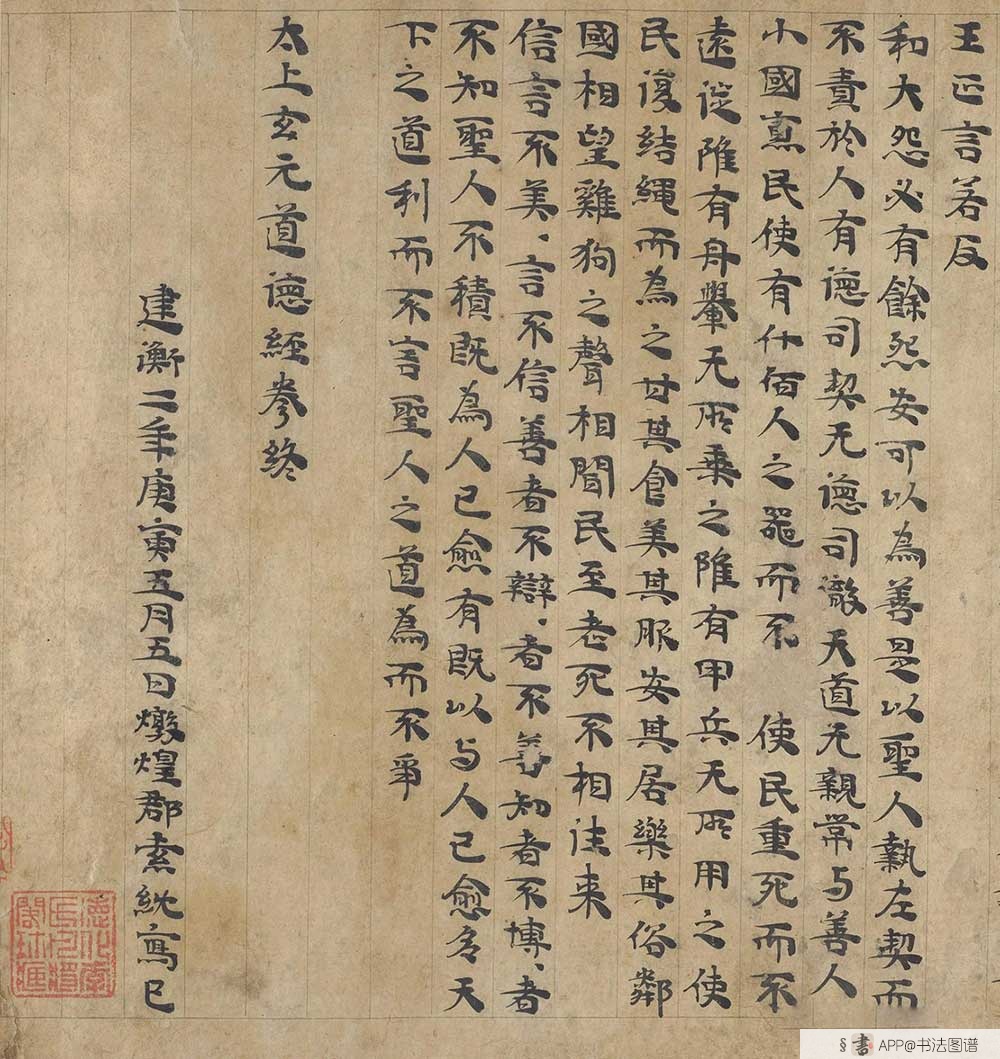 王正言若反
和大怨必有餘怨安可以為善是以聖人執左契而
不責於人有德司契无德司徹天道无親常与善人
小國寡民使有什佰人之器而不 使民重死而不
遠徙雖有舟轝无所乗之雖有甲兵无所用之使
民復結繩而為之甘其食美其服安其居樂其俗鄰
國相望雞狗之聲相聞民至老死不相往来
信言不美、言不信善者不辯、者不善知者不博、者
不知聖人不積既為人己愈有既以与人己愈多天
下之道利而不害聖人之道為而不爭
太上玄元道德經卷終
建衡二年庚寅五月五日燉煌郡索紞寫已
德化李
氏凡將
閣珍藏
APP@书法图谱